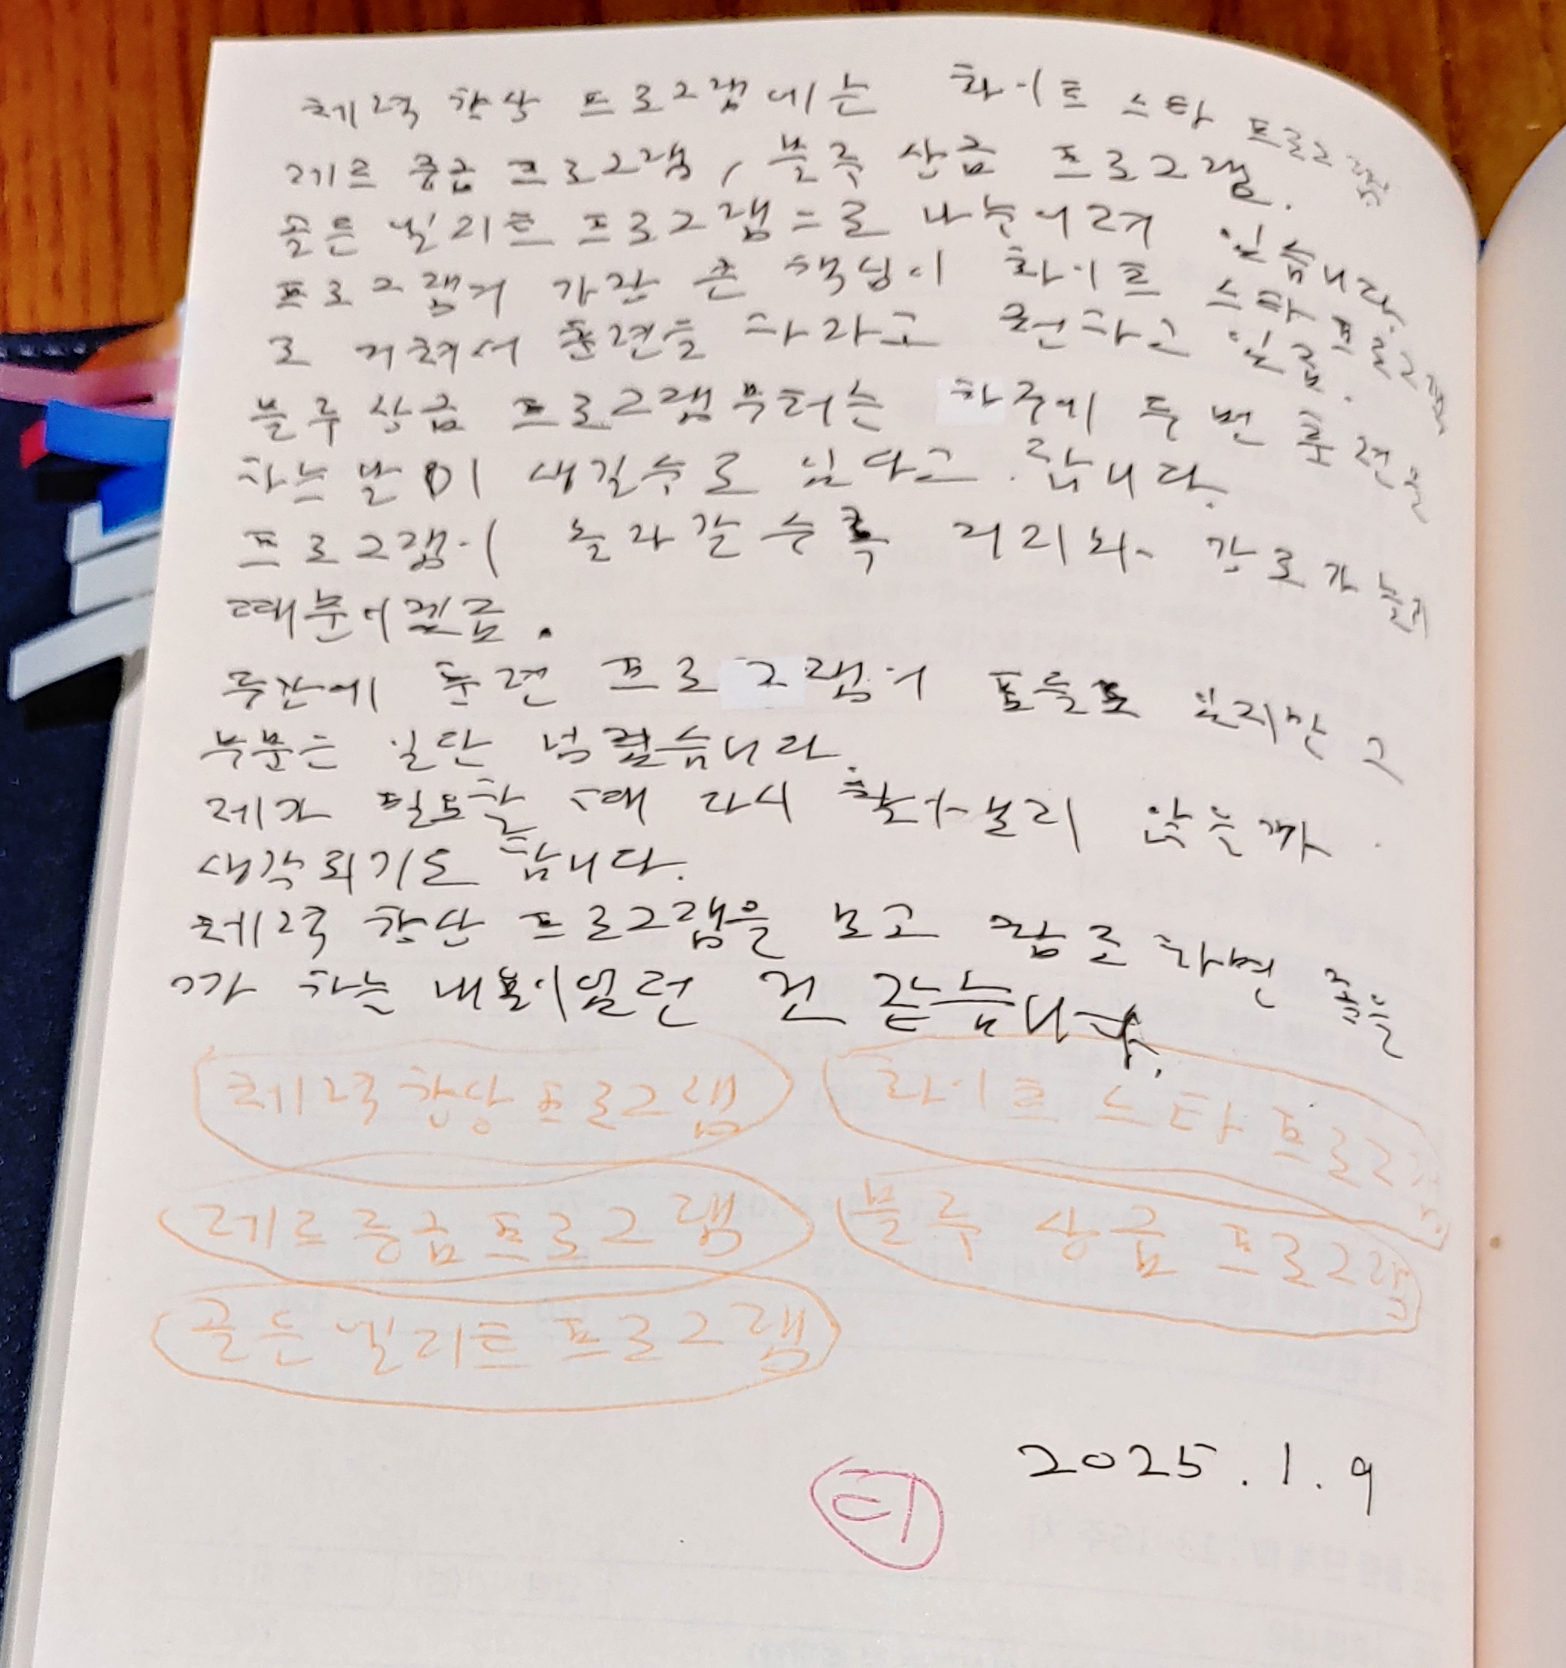 체력 향상 프로그램에는 화이트 스타 프로그램
레드 중급 프로그램, 블루 상급 프로그램.
골든 엘리트 프로그램으로 나누어져 있습니다.
프로그램의 가장 큰 핵심이 화이트 스타 프로그램
로 거쳐서 훈련을 하라고 권하고 있음.
블루 상급 프로그램부터는 하루에 두 번 훈련을
하는 날이 생길수도 있다고 합니다.
프로그램이 올라갈수록 거리와 강도가 높기
때문이겠죠.
중간에 훈련 프로그램이 표들도 있지만 그
부분은 일단 넘겼습니다.
제가 필요할 때 다시 찾아보리 않을까
생각되기도 합니다.
체력 향상 프로그램을 보고 참고 하면 좋을
까 하는 내용이었던 것 같습니다.
체력 향상 프로그램 화이트 스타 프로그램
레드 중급 프로그램 블루 상급 프로그램
골든 엘리트 프로그램
2025.1.9